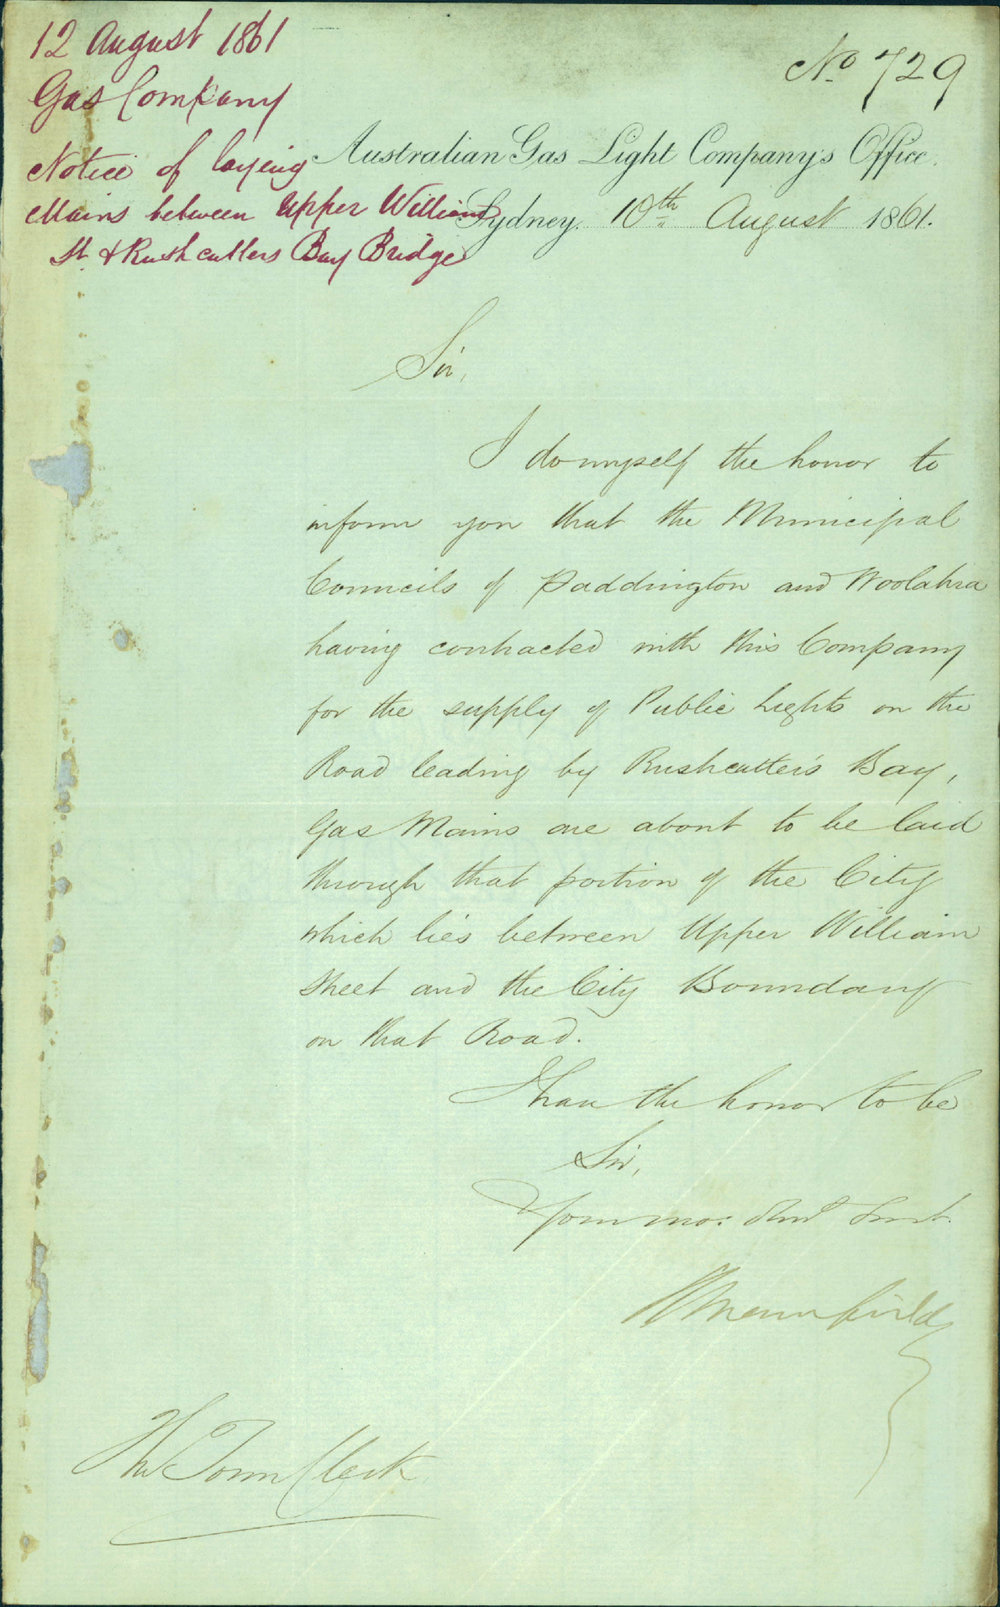 12 August 1861
Gas Company
Notice of laying
Mains between Upper William
St. & Rushcutters Bay Bridge
No 729
Australian Gas Light Company's Office.
Sydney. 10th August 1861.
Sir,
I do myself the honor to
inform you that the Municipal
Councils of Paddington and Woolahra
having contracted with this Company
for the supply of Public Lights on the
Road leading by Rushcutter's Bay,
Gas Mains are about to be laid
through that portion of the City
which lies between Upper William
Street and the City Boundary
on that Road.
I have the honor to be
Sir,
Your mo: Obdt Servt.
Mansfield
The Town Clerk